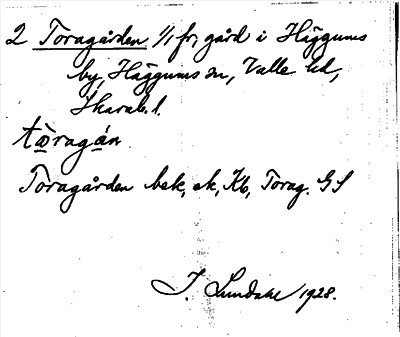 2 Toragården 1/1 fr, gård i Häggums
by, Häggums sn, Valle hd,
Skarab. l.
tɷragán
Toragården bek, ek, Kb, Torag. GS
I. Lundahl 1928.